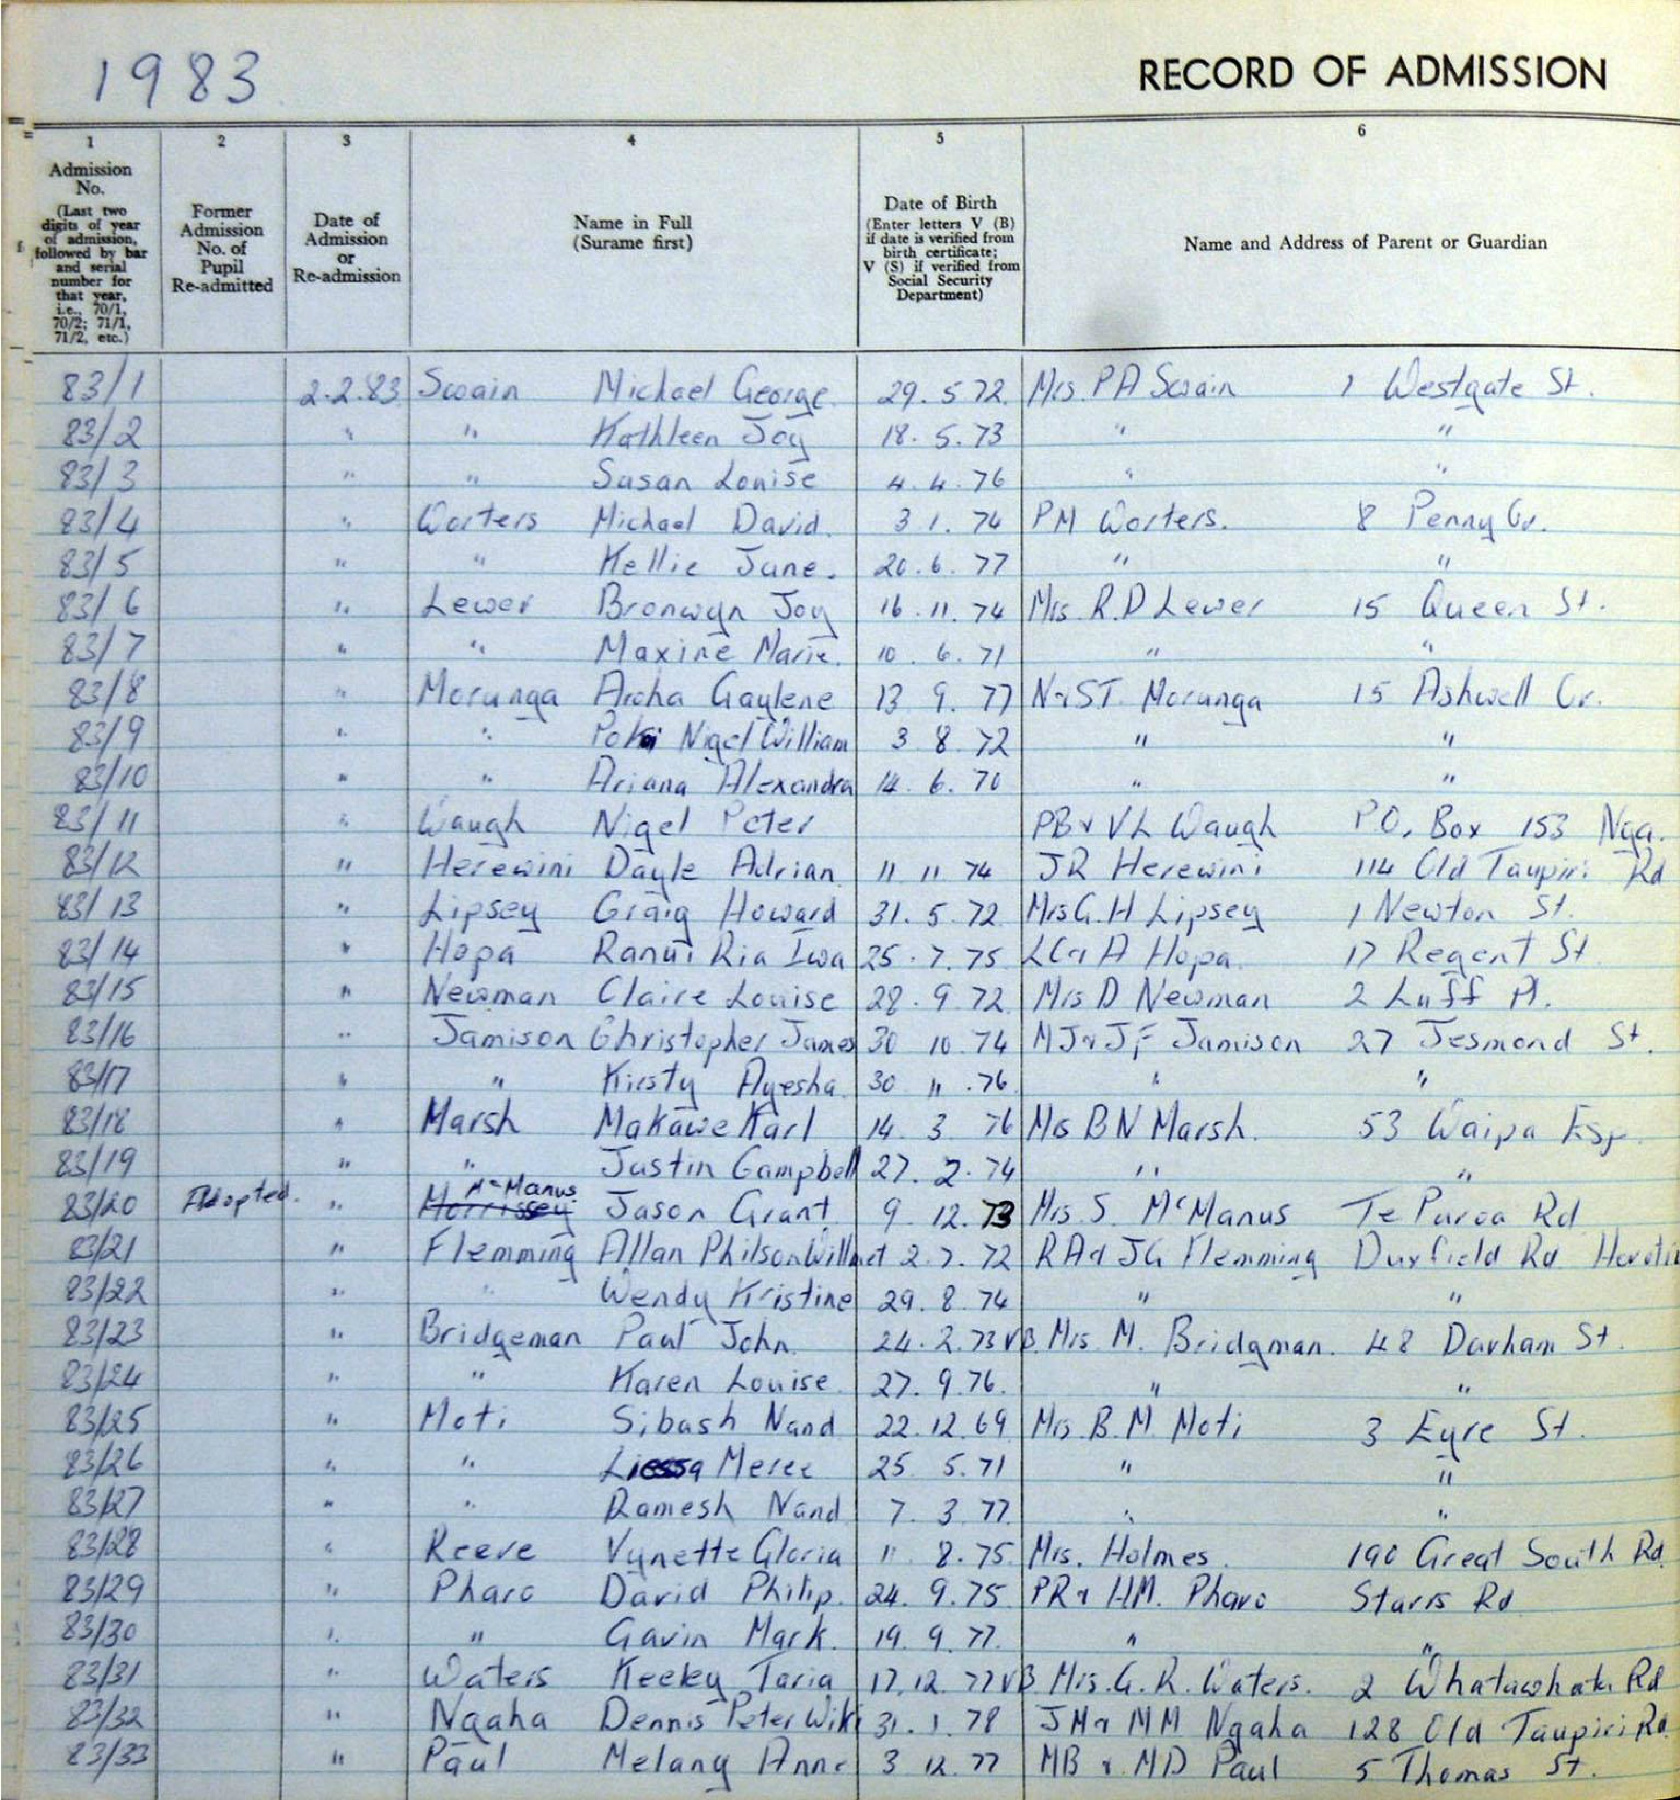 1983
RECORD OF ADMISSION
1 2 3 4 5 6
Admission No. (Last two digits of year of admission, followed by bar and serial number for that year, i.e., 70/1, 70/2; 71/1, 71/2, etc.)
Former Admission No. of Pupil Re-admitted
Date of Admission or Re-admission
Name in Full (Surame first)
Date of Birth (Enter letters V (B) if date is verified from birth certificate; V (S) if verified from Social Security Department)
Name and Address of Parent or Guardian
83/1 2.2.83 Swain Michael George 29.5.72. Mrs. P A Swain 1 Westgate St.
83/2 " " Kathleen Joy 18.5.73 " "
83/3 " " Susan Louise 4.4.76 " "
83/4 " Worters Michael David. 3 1. 74 PM Worters. 8 Penny Cr.
83/5 " " Kellie Jane. 20.6.77 " "
83/6 " Lewer Bronwyn Joy 16.11.74 Mrs. R.D Lewer 15 Queen St.
83/7 " " Maxine Marie. 10.6.71 " "
83/8 " Morunga Aroha Gaylene 13 9. 77 N & S T. Morunga 15 Ashwell Cr.
83/9 " " Nigel William 3 8. 72 " "
83/10 " " Ariana Alexandra 14. 6. 70 " "
83/11 " Waugh Nigel Peter PB & VL Waugh P.O. Box 153 Nga.
83/12 " Herewini Dayle Adrian 11 11 74 JR Herewini 114 Old Taupiri Rd
83/13 " Lipsey Craig Howard 31.5.72 Mrs G.H Lipsey 1 Newton St.
83/14 " Hopa Ranui Ria Iwa 25.7.75 & A Hopa 17 Regent St.
83/15 " Newman Claire Louise 28.9 72 Mrs D Newman 2 Luff Pl.
83/16 " Jamison Christopher James 30 10.74 MJ & J F Jamison 27 Jesmond St.
83/17 " " Kirsty Ayesha 30 11.76. " "
83/18 " Marsh Makawe Karl 14. 3 76 Mrs B N Marsh. 53 Waipa Esp.
83/19 " " Justin Campbell 27.2.74 " "
83/20 Adopted. " Morrissey McManus Jason Grant 9.12.73 Mrs. S. McManus Te Puroa Rd
83/21 " Flemming Allan Philson 2.7.72 RA & JG Flemming Duxfield Rd
83/22 " " Wendy Kristine 29.8.74 " "
83/23 " Bridgeman Paul John. 24.2.73 VB. Mrs. M. Bridgman. 48 Durham St.
83/24 " " Karen Louise. 27.9.76. " "
83/25 " Moti Sibash Nand 22.12.69 Mrs. B. M. Moti 3 Eyre St.
83/26 " " Meree 25. 5.71 " "
83/27 " " Ramesh Nand 7. 3.77. " "
83/28 " Reeve Vynette Gloria 11 8.75. Mrs. Holmes. 190 Great South Rd.
83/29 " Pharo David Philip. 24.9.75 PR & HM. Pharo Starrs Rd
83/30 " " Gavin Mark. 19.9.77. " "
83/31 " Waters Keeley Taria 17.12.77 VB Mrs. G. R. Waters. 2 Whatawhata Rd
83/32 " Ngaha Dennis Peter Wiki 31.1.78 JM & MM Ngaha 128 Old Taupiri Rd
83/33 " Paul Melany Anne 3 12.77 MB & MD Paul 5 Thomas St.